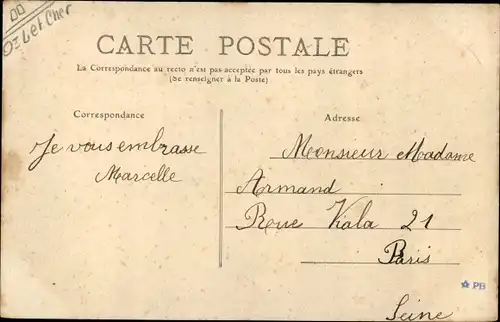 Oz Let Cher
CARTE POSTALE
La Correspondance au recto n'est pas acceptée par tous les pays étrangers
(Se renseigner à la Poste)
Correspondance
Je vous embrasse
Marcelle
Adresse
Monsieur Madame
Armand
Roue Viala 21
Paris
Seine
PB